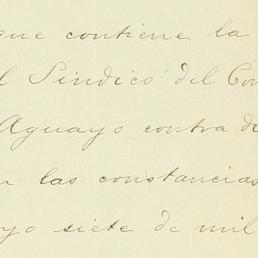 que contiene la
l Sindico del Con
Aguayo contra d
las constancias
yo siete de mil